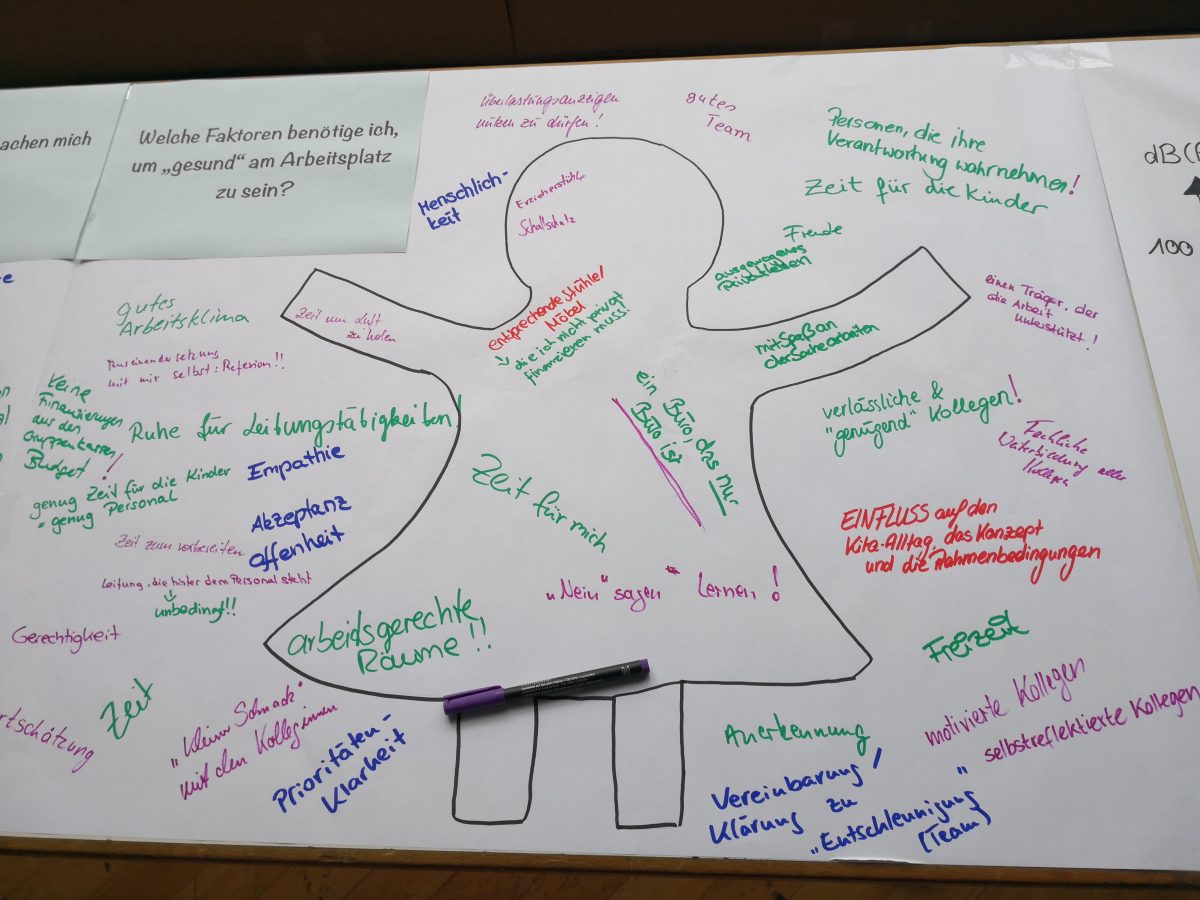 achen mich
Welche Faktoren benötige ich,
um „gesund" am Arbeitsplatz
zu sein?
Überlastungsanzeigen
nutzen zu dürfen!
gutes
Team
Personen, die ihre
Verantwortung wahrnehmen!
Zeit für die Kinder
dB(
100
Menschlich-
keit
Erzieherstühle
Schallschutz
Freude
ausgewogenes
Privatleben
entsprechende Stühle/
Möbel
die ich nicht privat
finanzieren muss!
gutes
Arbeitsklima
Zeit um Luft
zu holen
einen Träger, der
die Arbeit
unterstützt!
mit Spaß an
der Sache arbeiten
Auseinandersetzung
mit mir selbst:
Keine
Finanzierungen
aus den
Gruppenkassen
Budget!
Ruhe für Leitungstätigkeiten!
ein Büro, das nur
Büro ist
verlässliche &
"genügend" Kollegen!
Fachliche
aller
Kollegen
Empathie
genug Zeit für die Kinder
= genug Personal
Zeit für mich
Akzeptanz
Offenheit
EINFLUSS auf den
Kita-Alltag, das Konzept
und die Rahmenbedingungen
Zeit zum vorbereiten
Leitung, die hinter dem Personal steht
unbedingt!!
„Nein" sagen lernen!
Gerechtigkeit
arbeidsgerechte
Räume!!
Freizeit
Zeit
rtschätzung
„Klein Schnack"
mit den Kolleginnen
Prioritäten-
Klarheit
Anerkennung
motivierte Kollegen
selbstreflektierte Kollegen
Vereinbarung/
Klärung zu
„Entschleunigung"
(Team)